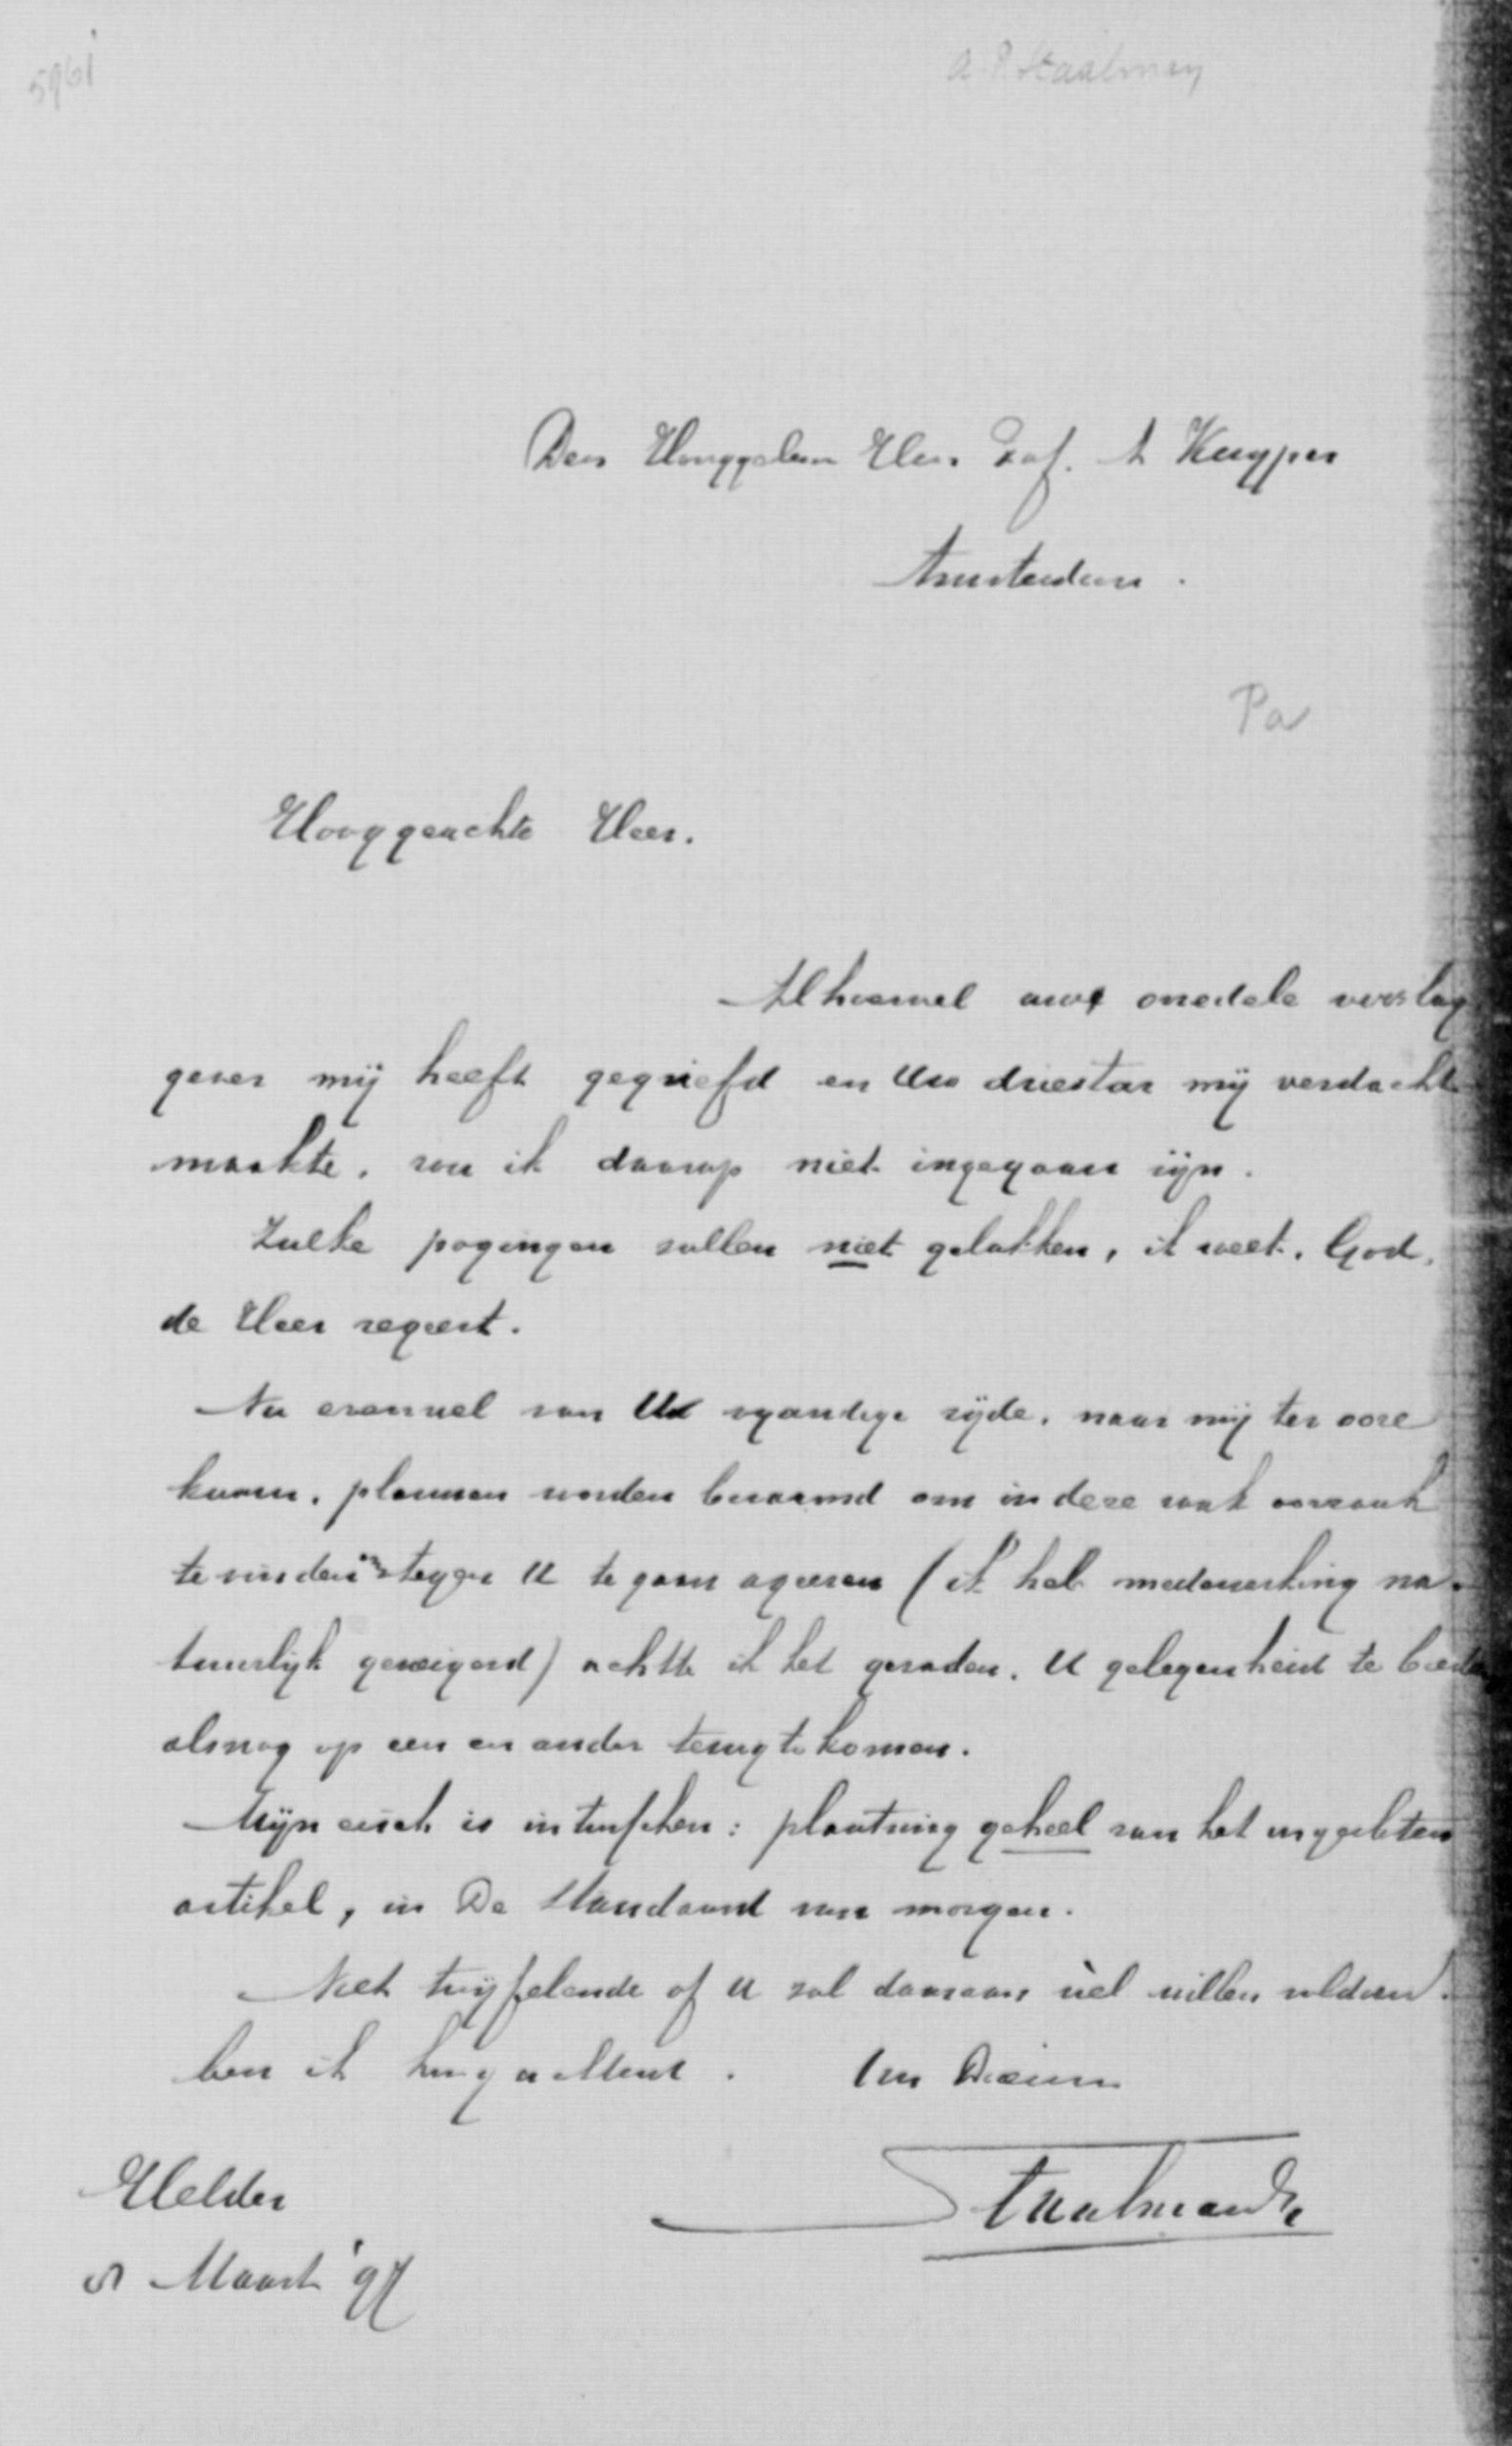 5961
A. P. Staalman
Den Hooggeleer Heer Prof. A Kuyper
Amsterdam.
Pa
Hooggeachte Heer.
Alhoewel uwe onedele verslag
gever mij heeft gegriefd en Uw driestar mij verdacht
maakte, zou ik daarop niet ingegaan zijn.
Zulke pogingen zullen niet gelukken, ik weet, God,
de Heer regeert.
Nu evenwel van U vyandige zijde, naar mij ter oore
kwam, plannen worden beraamd om in deze zaak oorzaak
te vinden om tegen U te gaan ageeren (ik heb medewerking na-
tuurlijk geweigerd) achtte ik het geraden, U gelegenheid te bieden
alsnog op een en ander terug te komen.
Mijn eisch is intusschen: plaatsing geheel van het ingesloten
artikel, in De Standaard van morgen.
Niet twijfelende of U zal daaraan wèl willen voldoen.
ben ik hoogachtend. Uw Dienaar
Staalman
Helder
Maart '97